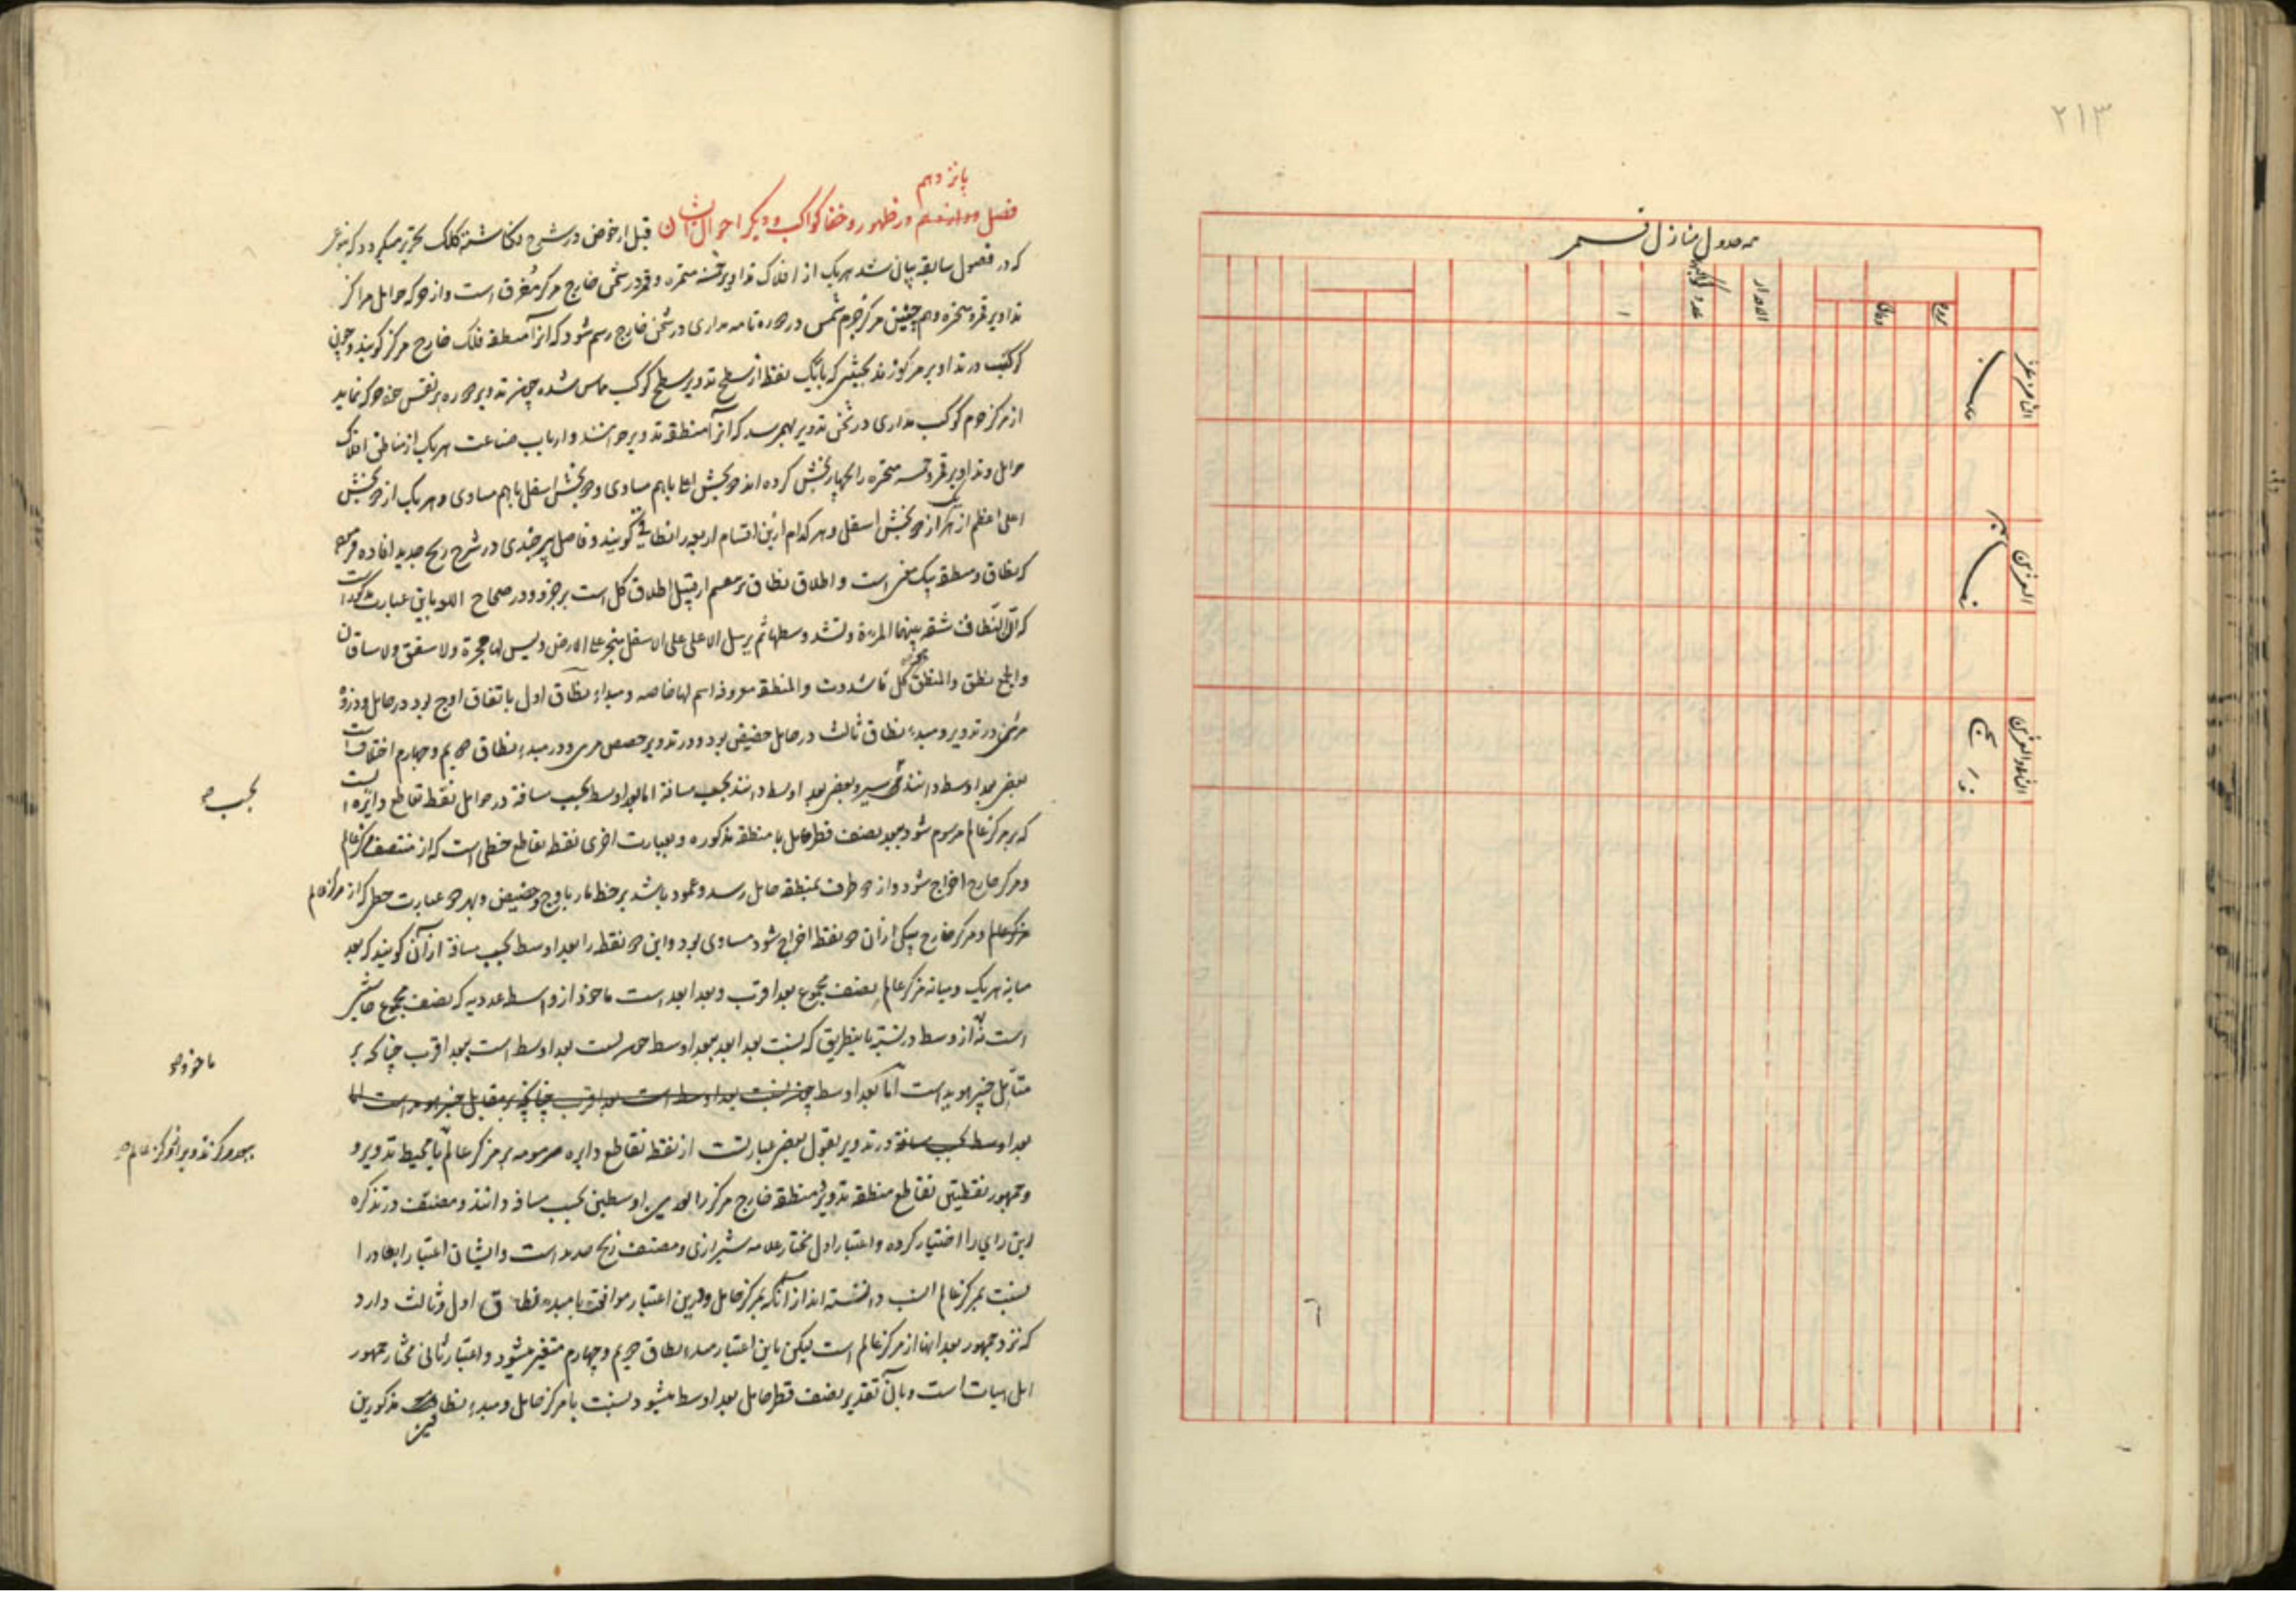 ٢١٣
جدول منازل قمر
بروج
دقائق
الادوار
عدد
پانزدهم
فصل دوازدهم در ظهور و خفا کواکب و دیگر احوال ایشان قبل از خوض در شرح نکاشته کلک تحریر میکردد که
که در فصول سابقه بیان شد هریک از افلاک تداویر خمسه متحیره و قمر در ثخن خارج مرکز مغرق است و از حرکه حوامل مراکز
تداویر قمر و متحیره و همچنین مرکز جرم شمس در دوره تامه مداری در ثخن خارج رسم شود که آنرا منطقه فلک خارج مرکز کویند و چون
کوکب در تداویر مرکوزند بحیثیتی که بایک نقطه از سطح تدویر سطح کوکب مماس شده چون تدویر دوره بر نفس خود حرکه نماید
از مرکز جرم کوکب مداری در ثخن تدویر بهم رسد که آنرا منطقه تدویر خوانند و ارباب صناعت هریک از مناطق افلاک
حوامل و تداویر قمر و خمسه متحیره را بچهار بخش کرده اند دو بخش اعلا باهم مساوی و دو بخش اسفل باهم مساوی و هریک از دو بخش
اعلی اعظم از هریک از دو بخش اسفل و هر کدام ازین اقسام اربعه را نطاقی کویند و فاضل بیرجندی در شرح زیج جدید افاده فرموده
که نطاق و منطقه بیک معنی است و اطلاق نطاق بر قسم از قبیل اطلاق کل است بر جزو و در صحاح اللغه باین عبارت
که النطاق شقه بینهما المرءة و تشد وسطها ثم یرسل الاعلی علی الاسفل ینجر علی الارض و لیس لها حجزة و لا سفق و لا ساقان
و الجمع نطق و المنطق کل ما شددت و المنطقه معروفه اسم لها خاصه و مبداء نطاق اول باتفاق اوج بود در حامل و ذروه
مرئی در تدویر و مبدء نطاق ثالث در حامل حضیض بود و در تدویر حضیض مرئی و در مبدء نطاق دویم و چهارم اختلاف است
بعضی بعد اوسط دانند بحسب سیر و بعضی بعد اوسط دانند بحسب مسافة اما بعد اوسط بحسب مسافة در حوامل نقطه تقاطع دایره
که بر مرکز عالم مرسوم شود ببعد نصف قطر حامل با منطقه مذکوره و بعبارت اخری نقطه تقاطع خطی است که از منتصف مرکز عالم
و مرکز خارج اخراج شود و از دو طرف بمنطقه حامل رسد و عمود باشد بر خط مار باوج و حضیض و بهر دو عبارت خطی که از مرکز عالم
مرکز عالم و مرکز خارج بیکی از آن دو نقطه اخراج شود مساوی بود و این دو نقطه را بعد اوسط بحسب مسافة از آن کویند که بعد
میانه هریک و میانه مرکز عالم نصف مجموع بعد اقرب و بعد ابعد است ماخوذ از واسطه عددیه که نصف مجموع حاشیتین
است نه از وسط در نسبة باینطریق که نسبت بعد ابعد ببعد اوسط چون نسبت بعد اوسط است ببعد اقرب چنانکه بر
متأمل خبیر هویداست اما بعد اوسط چون نسبت بعد اوسط است ببعد اقرب چنانچه بر مقابل خبیر هویداست اما
بعد اوسط بحسب مسافة در تدویر بقول بعضی عبارتست از نقطه تقاطع دایره مرسومه بر مرکز عالم با محیط تدویر و
و جمهور نقطتین تقاطع منطقه تدویر و منطقه خارج مرکز را بعدین اوسطین بحسب مسافه دانند و مصنف در تذکره
این رای را اختیار کرده و اعتبار اول مختار علامه شیرازی و مصنف زیج جدید است و ایشان اعتبار ابعاد را
نسبت بمرکز عالم انسب دانسته اند از آنکه بمرکز حامل و درین اعتبار موافقت با مبدء نطاق اول و ثالث دارد
که نزد جمهور بعد آنها از مرکز عالم است لیکن باین اعتبار مبدء نطاق دویم و چهارم متغیر میشود و اعتبار ثانی مختار جمهور
اهل هیات است و بآن تقدیر نصف قطر حامل بعد اوسط میشود نسبت با مرکز حامل و مبدء نطاقین مذکورین
بحسب
ماخوذ
ببعد مرکز تدویر از مرکز عالم